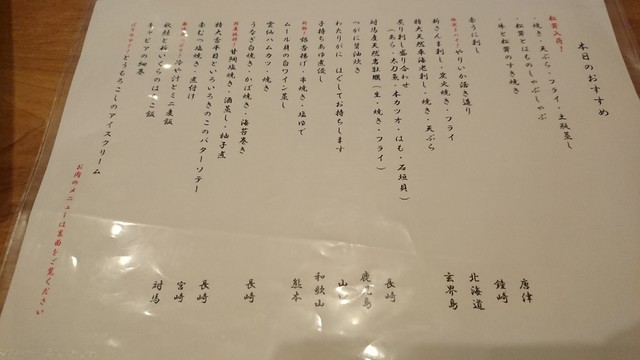 本日のおすすめ
松茸入荷！
・焼き・天ぷら・フライ・土瓶蒸し
・松茸とはものしゃぶしゃぶ
・牛と松茸のすき焼き
赤うに刺し 唐津
やりいか活き造り 鐘崎
新さんま刺し・炭火焼き・フライ 北海道
特大天然車海老刺し・焼き・天ぷら 玄界島
炙り刺し盛り合わせ
（あら・太刀魚・本カツオ・はも・石垣貝）
対馬産天然岩牡蠣（生・焼き・フライ）
つがに醤油炊き 長崎
わたりがに はぐしてお持ちします 鹿児島
子持ちあゆ煮浸し
ムール貝の白ワイン蒸し 和歌山
銀杏揚げ・串焼き・塩ゆで 熊本
雲仙ハムカツ・焼き
うなぎ白焼き・かば焼き・海苔巻き
甘鯛塩焼き・酒蒸し・柚子煮 長崎
特大舌平目といろいろきのこのバターソテー
赤むつ塩焼き・煮付け 長崎
冷や汁とミニ麦飯 宮崎
秋鮭といくらのはらこ飯
キャビアの細巻 対馬
とうもろこしのアイスクリーム
お肉のメニューは裏面をご覧ください